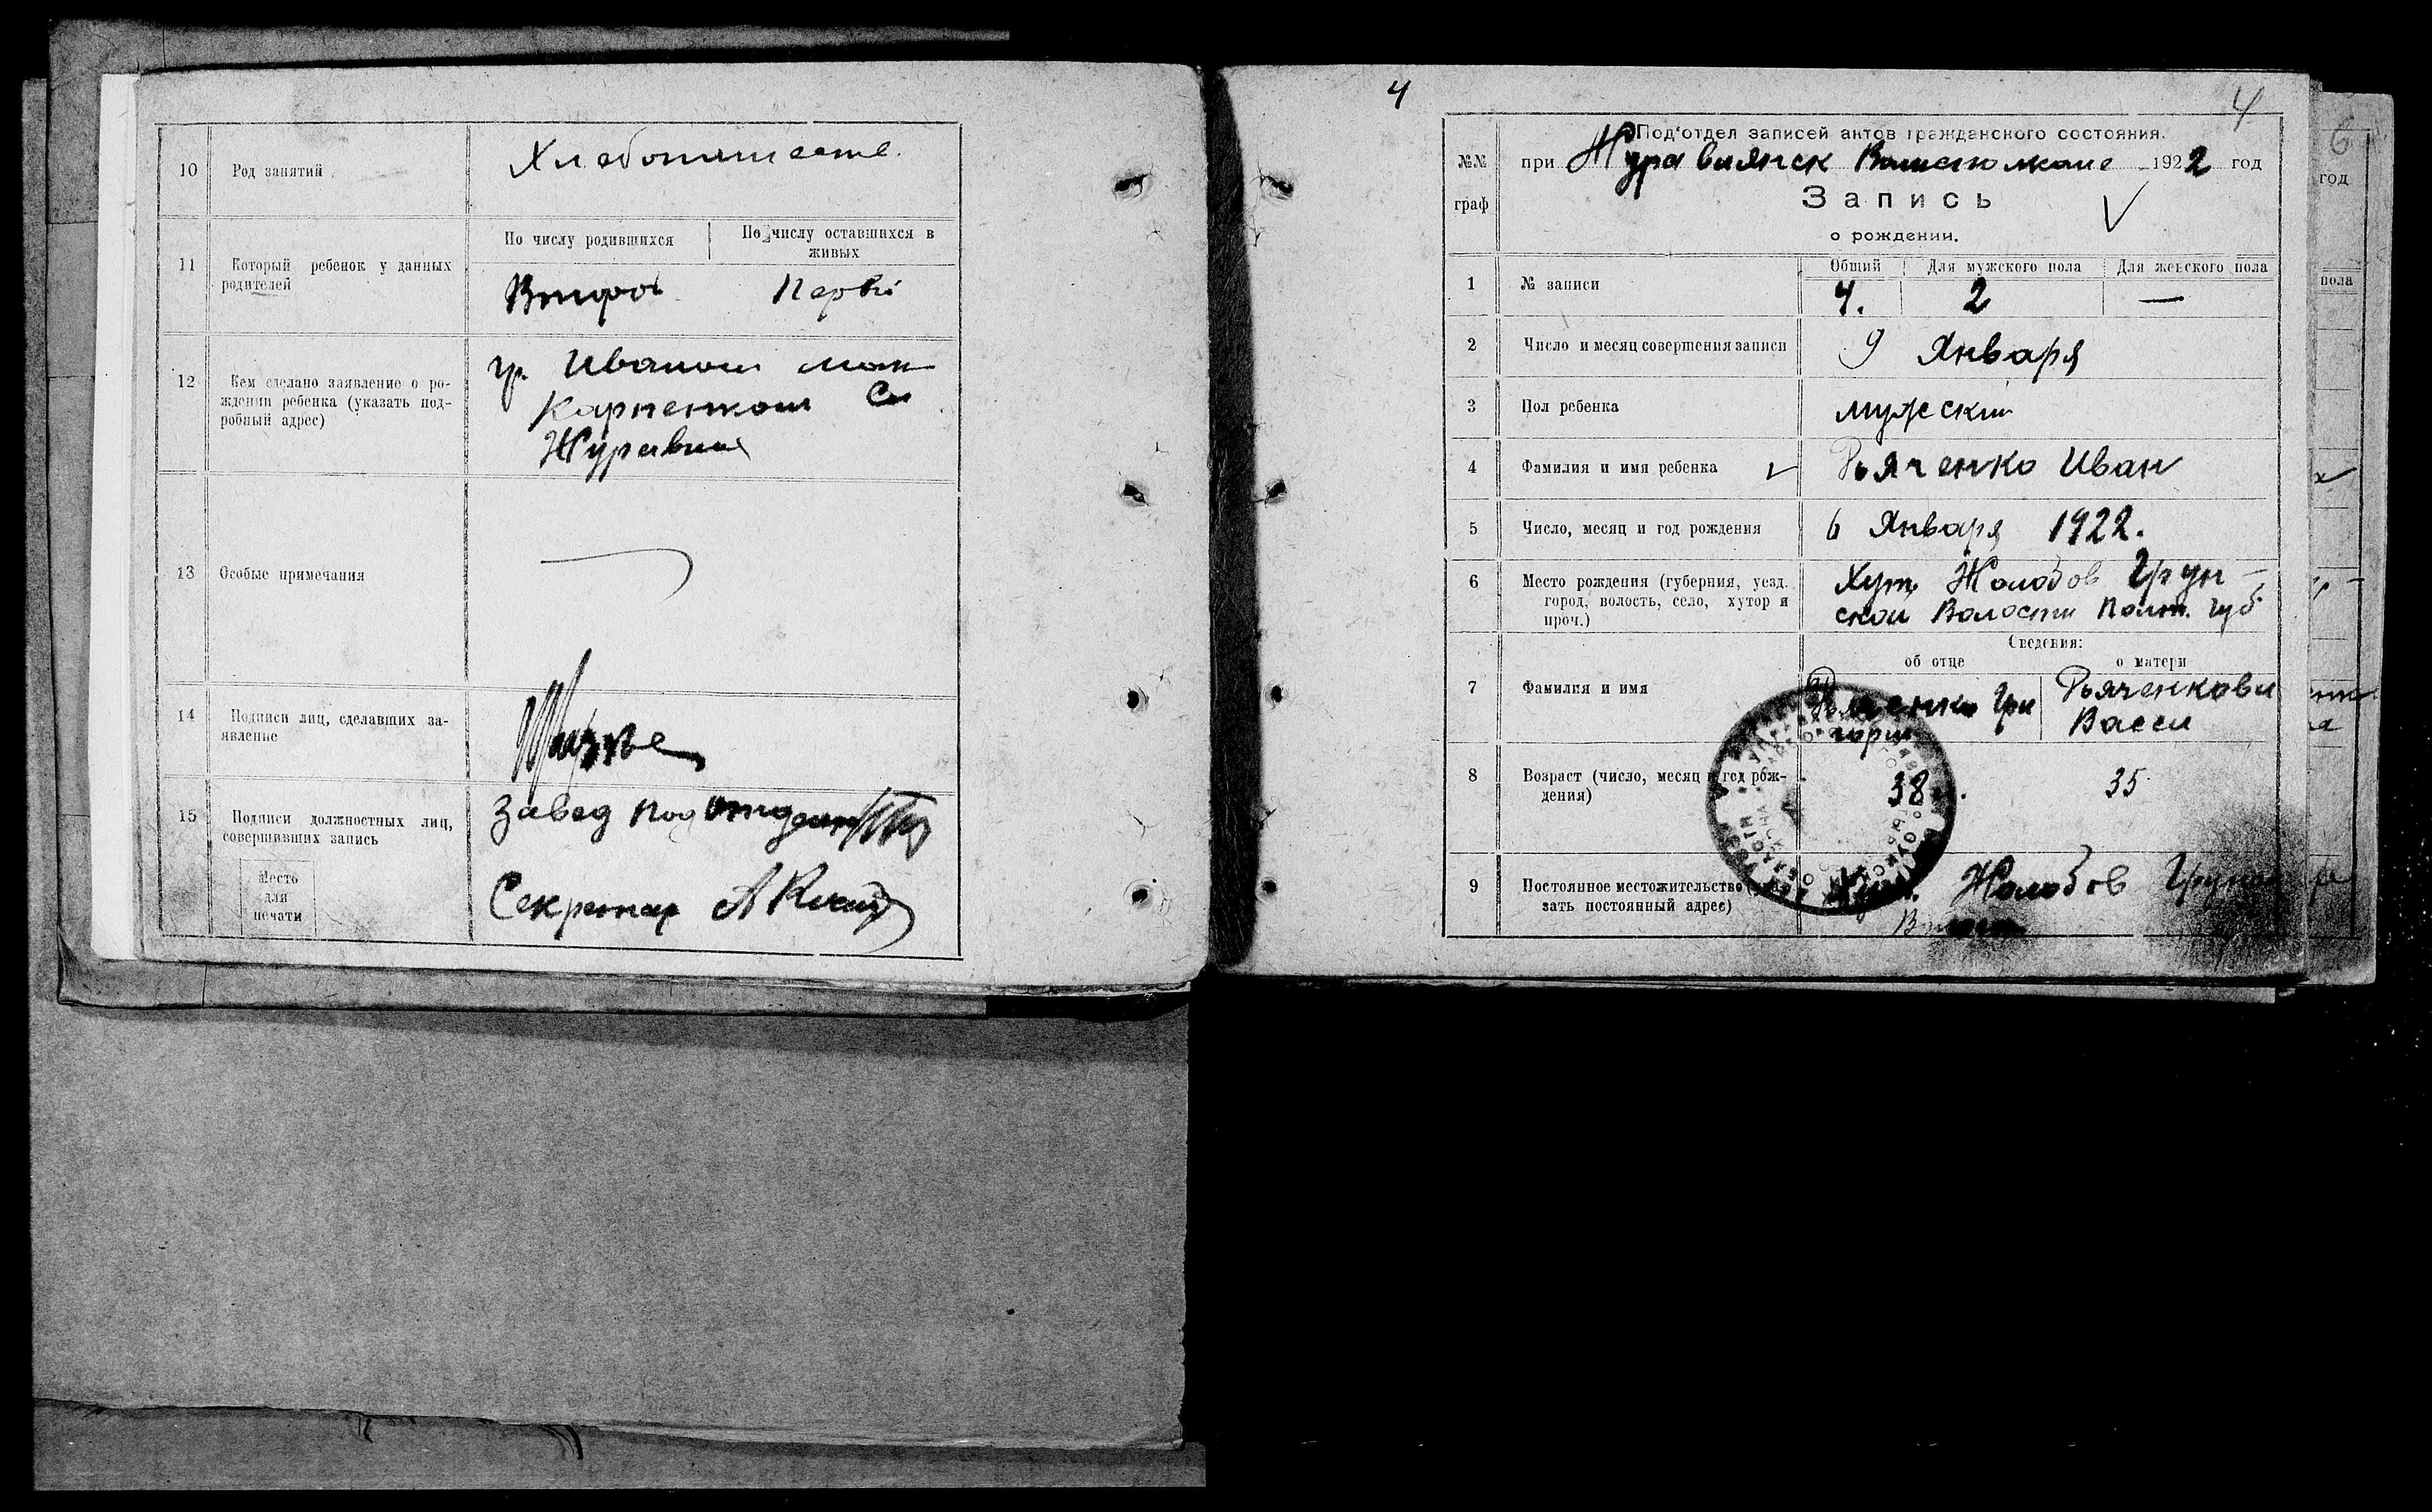 10 Род занятий
Хлебопашеств.
11 Который ребенок у данных
родителей
По числу родившихся
По числу оставшихся в
живых
Второй Первы
12 Кем сделано заявление о ро-
ждении ребенка (указать под-
робный адрес)
гр. Иваном
Карпенком
13 Особые примечания
14 Подписи лиц, сделавших за-
явление
15 Подписи должностных лиц,
совершивших запись
Завед Под
Секретар
Место
для
печати
4
4
№№
граф
Под'отдел записей актов гражданского состояния.
при 1922 год
Запись
о рождении.
1 № записи
Общий Для мужского пола Для женского пола
4. 2 —
2 Число и месяц совершения записи 9 Января
3 Пол ребенка мужский
4 Фамилия и имя ребенка Дьяченко Иван
5 Число, месяц и год рождения 6 Января 1922.
6 Место рождения (губерния, уезд.
город, волость, село, хутор и
проч.)
Хут. Жолобов Грун-
ской Волости Полт. губ.
Сведения:
об отце о матери
7 Фамилия и имя
Дьяченко Гри
гори
Дьяченкова
Васси
8 Возраст (число, месяц и год рож-
дения)
38 35
9 Постоянное местожительство
зать постоянный адрес)
Хут. Жолобов
6
год
пола